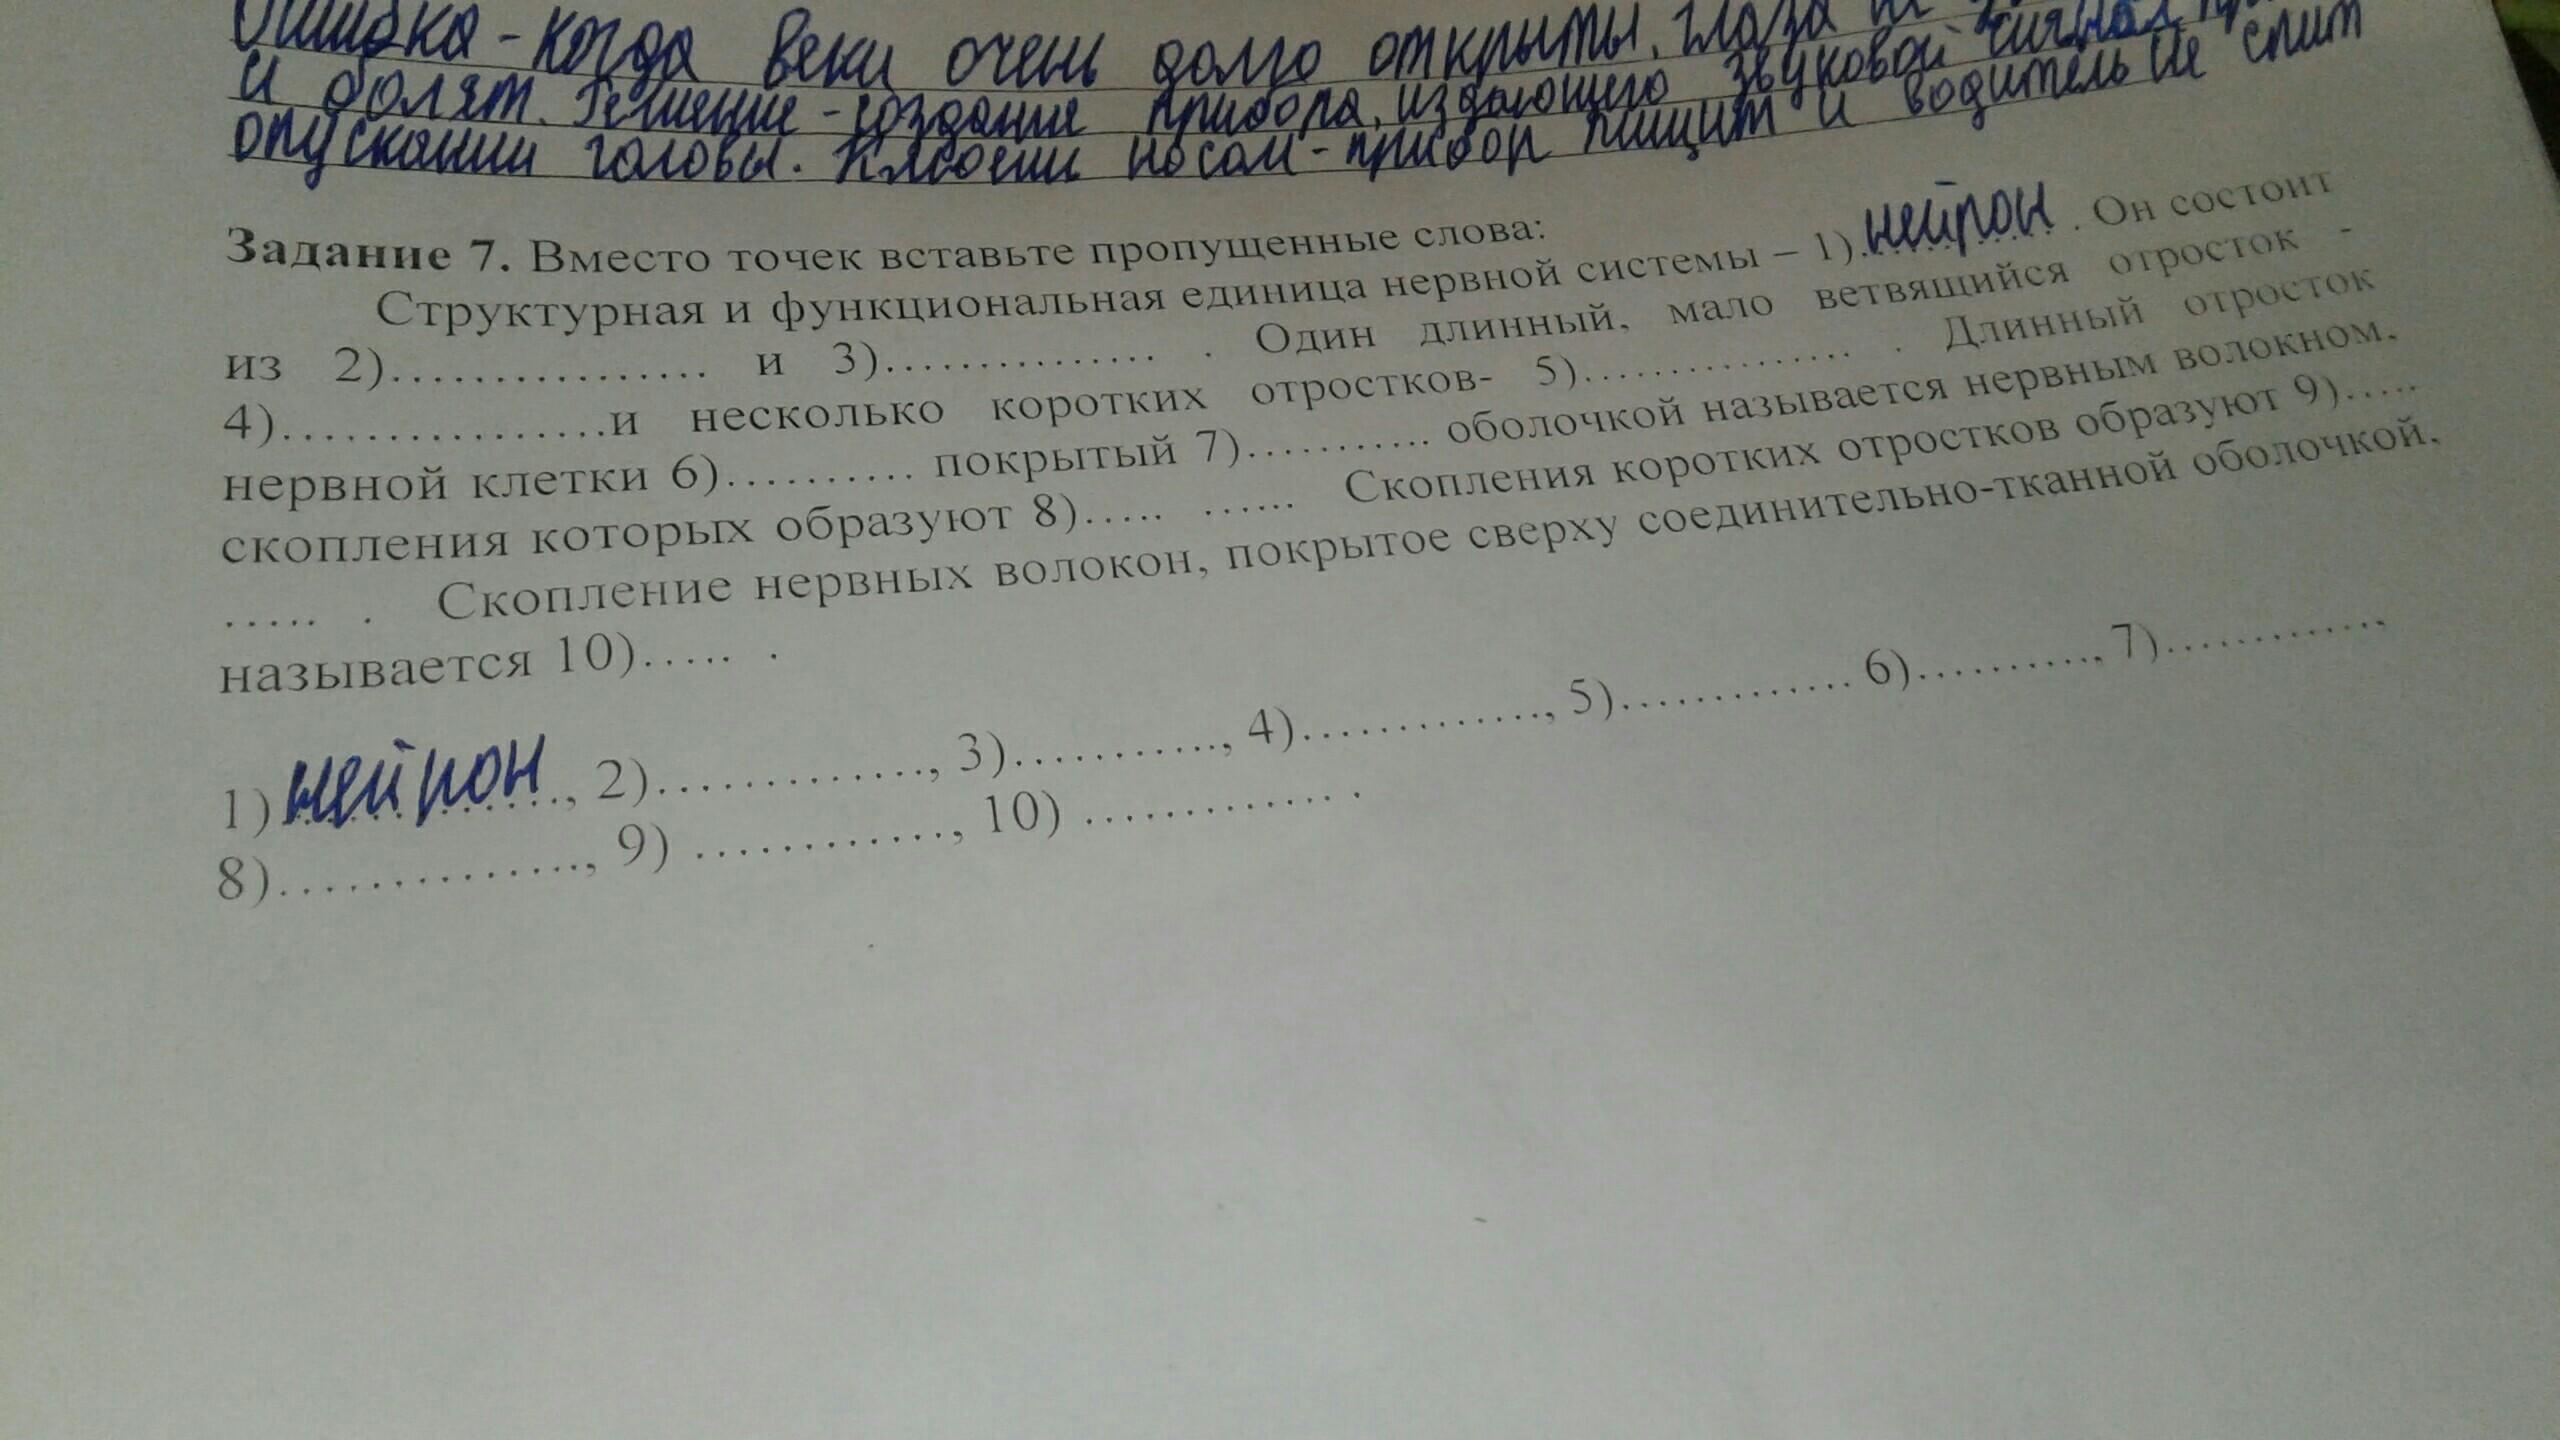 Ошибка - когда веки очень долго открыты, глаза
и болят. Решение - создание прибора, издающего звуковой сигнал при
опускании головы. Клюёшь носом - прибор пищит и водитель не спит
Задание 7. Вместо точек вставьте пропущенные слова:
Структурная и функциональная единица нервной системы – 1).нейрон. Он состоит
из 2)................. и 3)............... . Один длинный, мало ветвящийся отросток -
4).................и несколько коротких отростков- 5)................ . Длинный отросток
нервной клетки 6).......... покрытый 7)........... оболочкой называется нервным волокном,
скопления которых образуют 8)..... ...... Скопления коротких отростков образуют 9).....
..... . Скопление нервных волокон, покрытое сверху соединительно-тканной оболочкой,
называется 10)..... .
1) нейрон, 2)............., 3)..........., 4)............., 5)............. 6).........., 7)............,
8).............., 9) ............, 10) ............. .